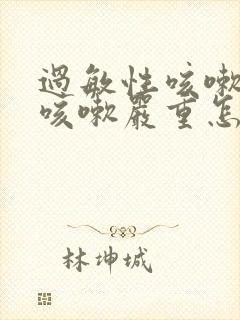 過敏性咳嗽
咳嗽嚴重怎
林坤城